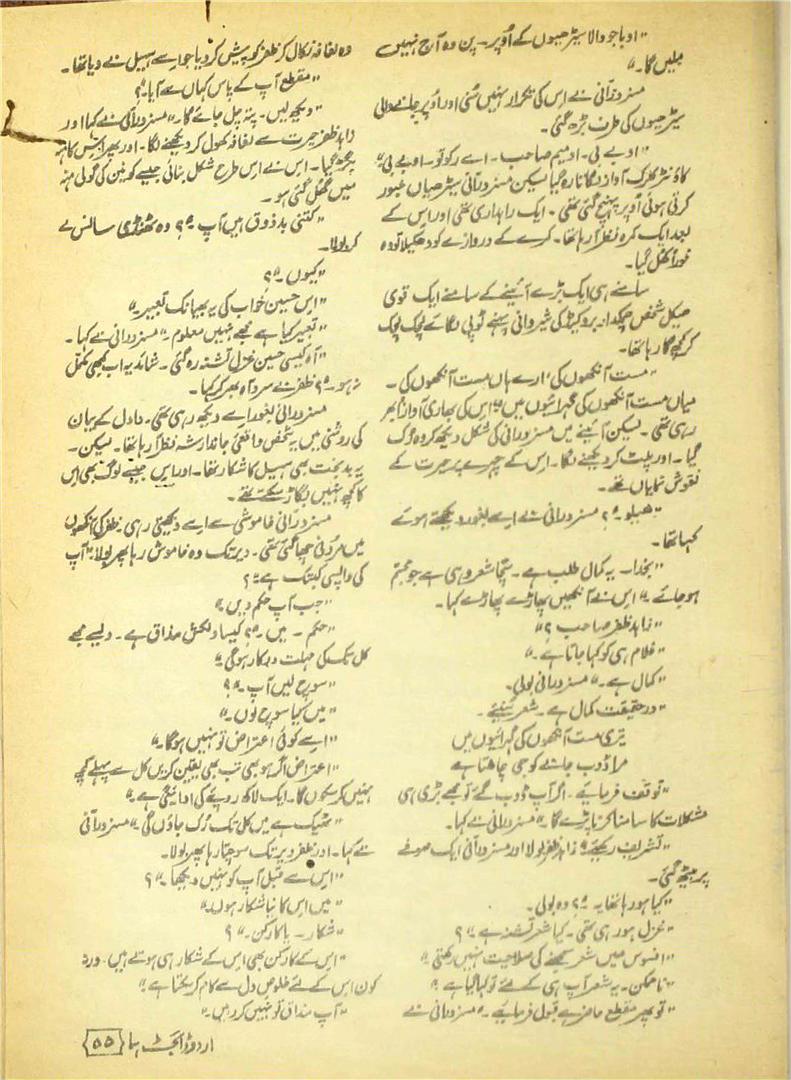 "او باجو والا سیڑھیوں کے اُوپر۔ پن وہ آج نہیں
ملیں گا۔"
مسز درانی نے اس کی تکرار نہیں سُنی اور اُوپر جانے والی
سیڑھیوں کی طرف بڑھ گئی۔
"او بے بی۔ او میم صاحب۔ اے رکو تو۔ او بے بی"
کاؤنٹر کلرک آواز لگاتا رہ گیا لیکن مسز درانی سیڑھیاں عبور
کرتی ہوئی اُوپر پہنچ گئی تھی۔ ایک راہداری تھی اور اس کے
بعد ایک کمرہ نظر آ رہا تھا۔ کمرے کے دروازے کو دھکیلا تو وہ
فوراً کھل گیا۔
سامنے ہی ایک بڑے آئینے کے سامنے ایک قوی
ہیکل شخص چمکدار بروکیڈ کی شیروانی پہنے ٹوپی لگائے لچک لچک
کر کچھ گا رہا تھا۔
"مست آنکھوں کی ارے ہاں مست آنکھوں کی۔
میاں مست آنکھوں کی گہرائیوں میں" اس کی بھاری آواز اُبھر
رہی تھی۔ لیکن آئینے میں مسز درانی کی شکل دیکھ کر وہ رُک
گیا۔ اور پلٹ کر دیکھنے لگا۔ اس کے چہرے پر حیرت کے
نقوش نمایاں تھے۔
"ہیلو۔" مسز درانی نے اسے بغور دیکھتے ہوئے
کہا تھا۔
"بخدا۔ یہ کمال طلب ہے۔ سچا شعر وہی ہے جو مجسم
ہو جائے۔" اس نے آنکھیں پھاڑے پھاڑے کہا۔
"زاہد ظفر صاحب؟"
"غلام ہی کو کہا جاتا ہے۔"
"کمال ہے۔" مسز درانی بولی۔
"درحقیقت کمال ہے۔ شعر سُنیئے۔
تیری مست آنکھوں کی گہرائیوں میں
مرا ڈوب جانے کو جی چاہتا ہے
"توقف فرمایئے۔ اگر آپ ڈوب گئے تو مجھے بڑی ہی
مشکلات کا سامنا کرنا پڑے گا۔" مسز درانی نے کہا۔
"تشریف رکھیئے" زاہد ظفر بولا اور مسز درانی ایک صوفے
پر بیٹھ گئی۔
"کیا ہو رہا تھا یہ۔" وہ بولی۔
"غزل ہو رہی تھی۔ کیا شعر تشنہ ہے۔؟
"افسوس میں شعر سمجھنے کی صلاحیت نہیں رکھتی۔"
"ناممکن۔ یہ شعر آپ ہی کے لئے تو کہا گیا ہے"
"تو پھر مقطع حاضر ہے قبول فرمایئے۔" مسز درانی نے
وہ لفافہ نکال کر ظفر کو پیش کر دیا جو اسے سہیل نے دیا تھا۔
"مقطع آپ کے پاس کہاں سے آیا۔؟
"دیکھ لیں۔ پتہ چل جائے گا۔" مسز درانی نے کہا اور
زاہد ظفر حیرت سے لفافہ کھول کر دیکھنے لگا۔ اور پھر اس کا منہ
بگڑ گیا۔ اس نے اس طرح شکل بنائی جیسے کونین کی گولی منہ
میں گھل گئی ہو۔
"کتنی بدذوق ہیں آپ۔" وہ ٹھنڈی سانس لے
کر بولا۔
"کیوں۔؟"
"اس حسین خواب کی یہ بھیانک تعبیر"
"تعبیر کیا ہے مجھے نہیں معلوم۔" مسز درانی نے کہا۔
"آہ کیسی حسین غزل تشنہ رہ گئی۔ شائد یہ اب کبھی مکمل
نہ ہو۔" ظفر نے سرد آہ بھر کر کہا۔
مسز درانی بغور اسے دیکھ رہی تھی۔ دادل کے بیان
کی روشنی میں یہ شخص واقعی جاندار شہ نظر آ رہا تھا۔ لیکن۔
یہ بدبخت بھی سہیل کا شکار تھا۔ اور اس جیسے لوگ بھی اس
کا کچھ نہیں بگاڑ سکتے تھے۔
مسز درانی خاموشی سے اسے دیکھتی رہی۔ ظفر کی آنکھوں
میں مردنی چھا گئی تھی۔ دیر تک وہ خاموش رہا پھر بولا۔ "آپ
کی واپسی کب تک ہے؟"
"جب آپ حکم دیں۔"
"حکم۔ میں۔" کیسا دلکش مذاق ہے۔ ویسے مجھے
کل تک کی مہلت درکار ہوگی"
"سوچ لیں آپ۔؟"
"میں کیا سوچ لوں۔"
"اسے کوئی اعتراض تو نہیں ہوگا۔"
"اعتراض اگر ہو بھی تب بھی یقین کریں کل سے پہلے کچھ
نہیں کر سکوں گا۔ ایک لاکھ روپے کی ادائیگی ہے۔"
"ٹھیک ہے میں کل تک رُک جاؤں گی۔" مسز درانی
نے کہا۔ اور ظفر دیر تک سوچتا رہا پھر بولا۔
"اس سے قبل آپ کو نہیں دیکھا۔؟"
"میں اس کا نیا شکار ہوں۔"
"شکار۔ یا کارکن۔؟"
"اس کے کارکن بھی اس کے شکار ہی ہوتے ہیں۔ ورنہ
کون اس کے لئے خلوص دل سے کام کر سکتا ہے"
"آپ مذاق تو نہیں کر رہیں۔"
اردو ڈائجسٹ ہما {۵۵}